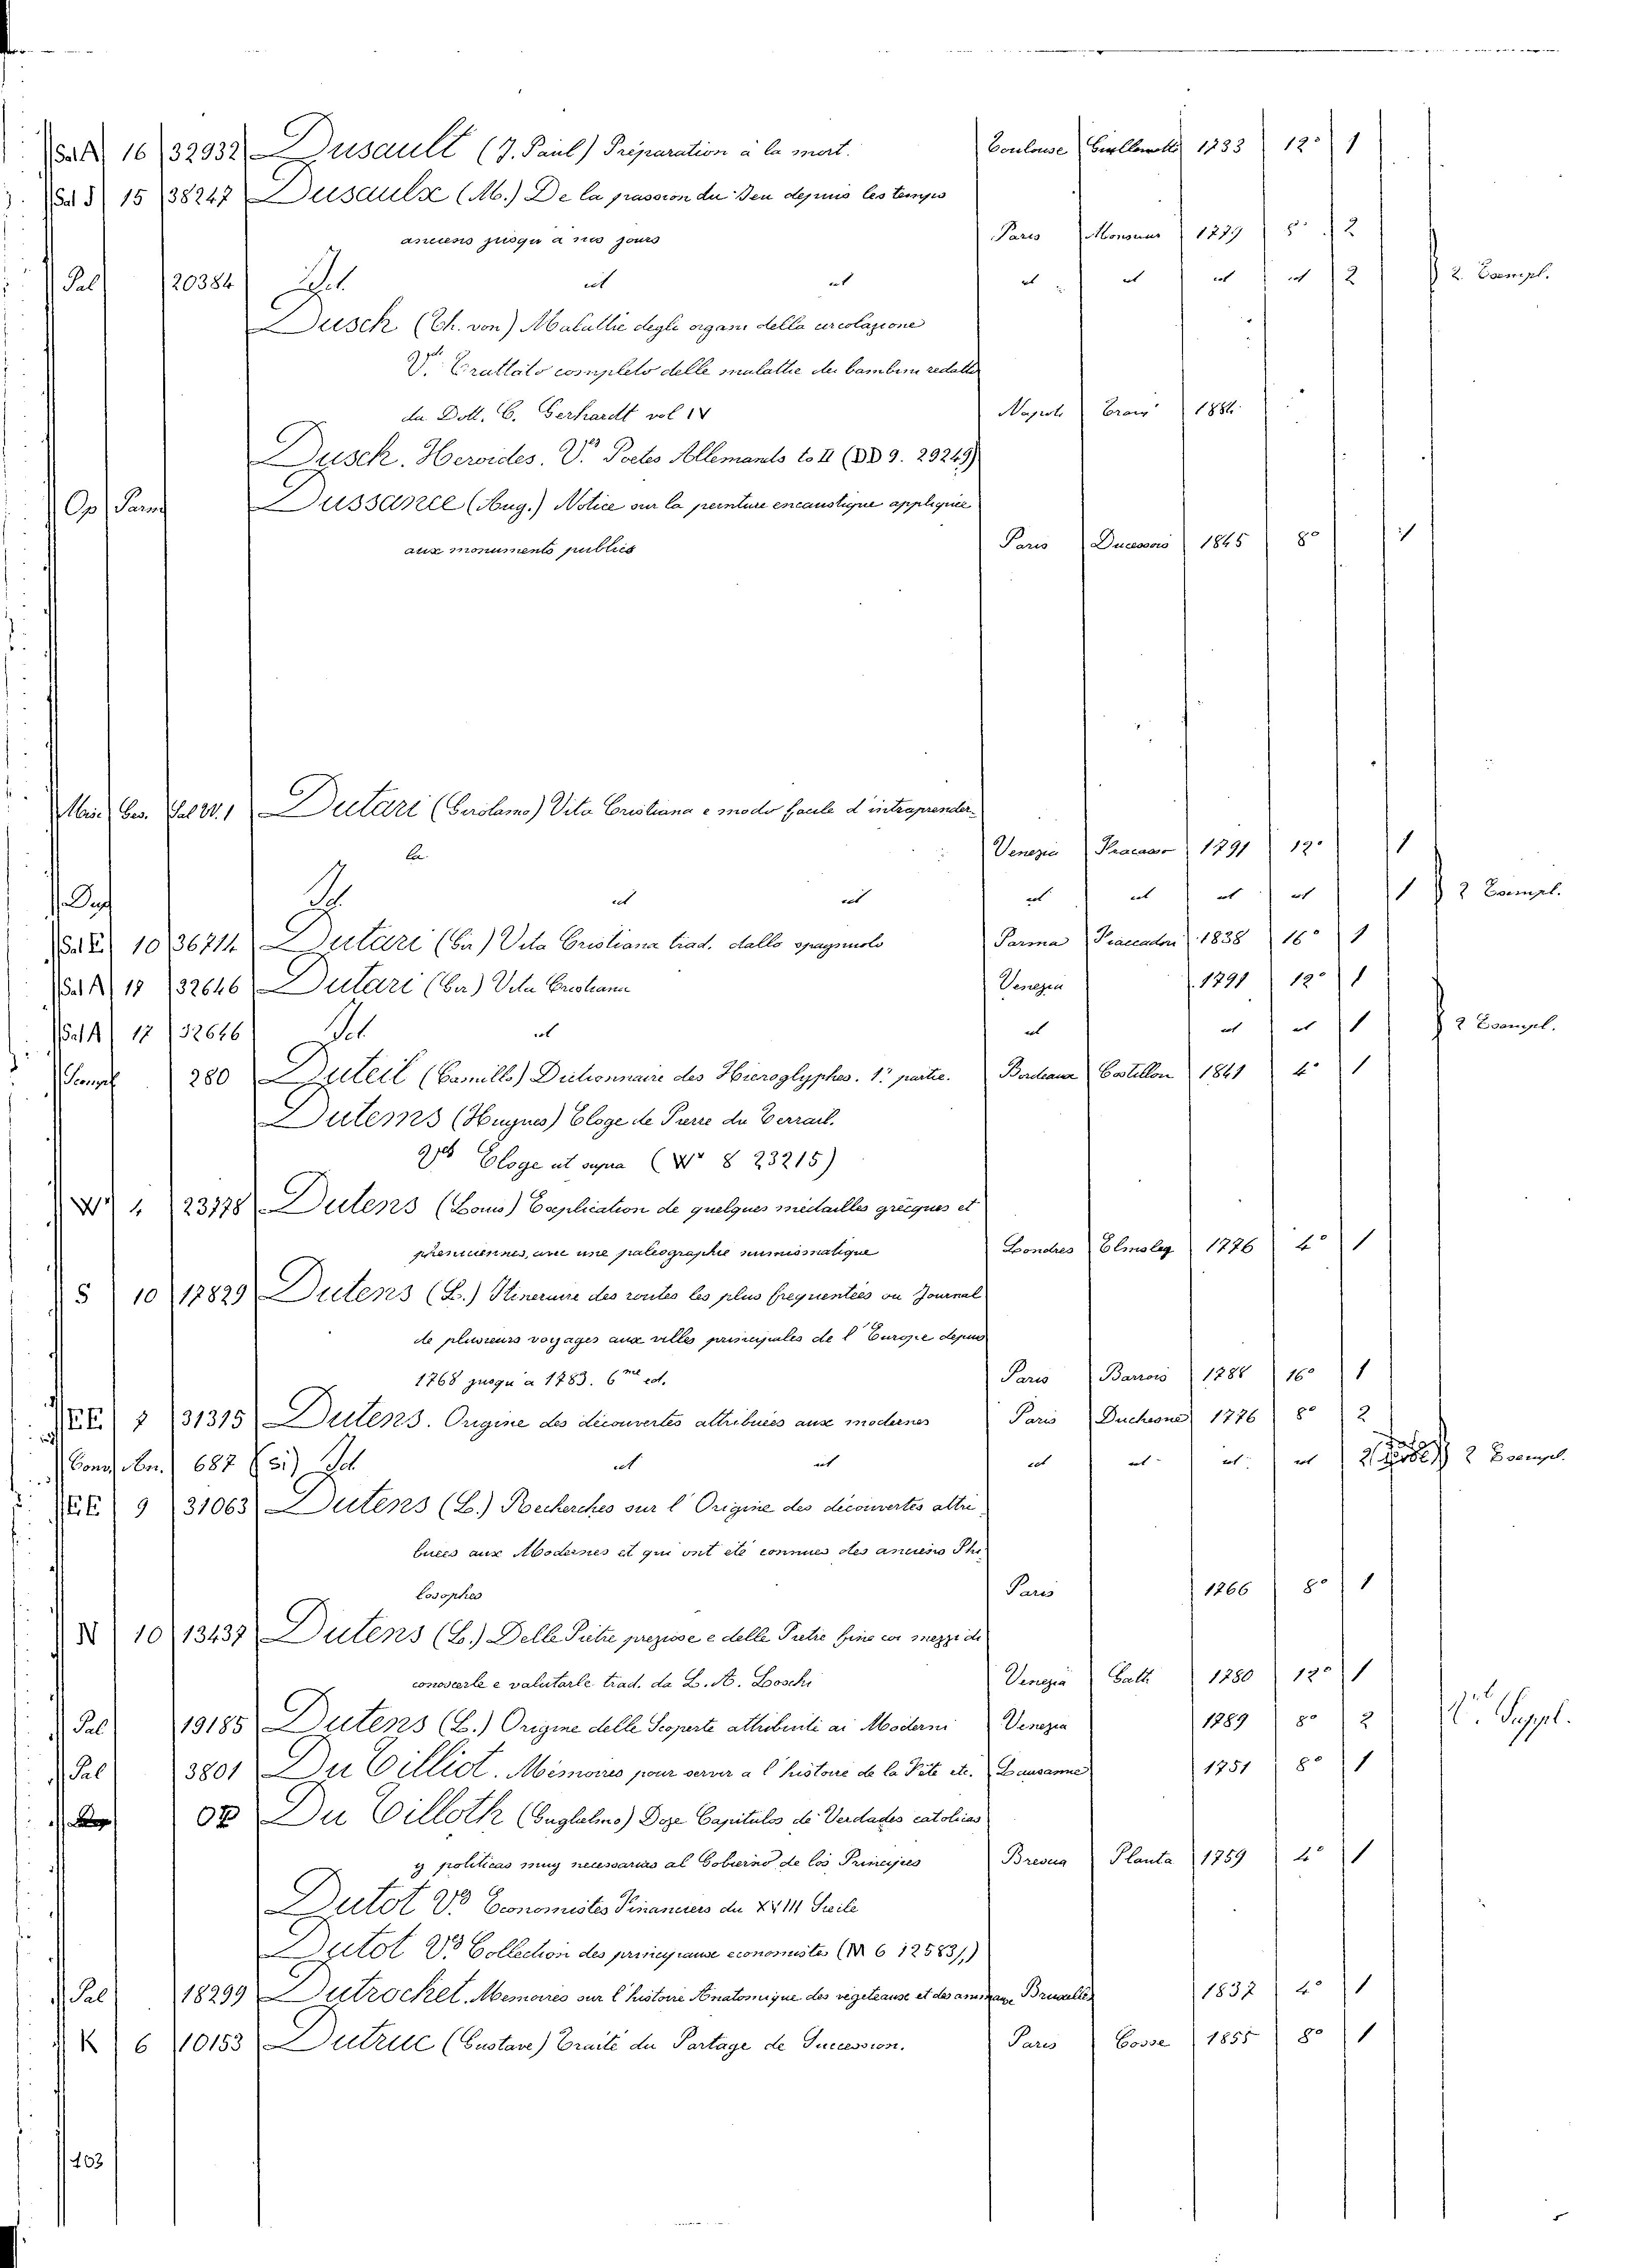 Sal A 16 32932 Dusault (J. Paul) Préparation à la mort. Toulouse 1733 12° 1
15 38247 Dusaulx (M.) De la passion du Jeu depuis les temps
anciens jusqu'a nos jours Paris Monsieur 1779 8° 2
Pal 20384 Id. id id id id id id 2 2. Exempl.
Dusch (Th. von) Malattie degli organi della circolazione
V. Trattato completo delle malattie dei bambini redatto
da Dott. C. Gerhardt vol IV Napoli 1884
Dusch. Heroides. V.º Poetes Allemands to II (DD 9. 29249)
Op Parm Dussance (Aug.) Notice sur la peinture encaustique appliquée
aux monuments publics Paris Ducessois 1845 8° 1
Ges. Sal W. 1 Dutari (Gerolamo) Vita Cristiana e modo facile d'intraprender-
la Venezia 1791 12° 1
Dup Id. id id id id id id 1 2 Exempl.
Sal E 10 36714 Dutari (Gir) Vita Cristiana trad. dallo spagnuolo Parma Fiaccadori 1838 16° 1
Sal A 17 32646 Dutari (Ger) Vita Cristiana Venezia 1791 12° 1
Sal A 17 32646 Id. id id id id 1 2 Exempl.
280 Duteil (Camille) Dictionnaire des Hieroglyphes. 1.º partie. Bordeaux Castillon 1841 4° 1
Dutems (Hugues) Eloge de Pierre du Terrail.
V.º Eloge ut supra (W° 8 23215)
W° 4 23778 Dutens (Louis) Explication de quelques médailles grecques et
pheniciennes, avec une paleographie numismatique Londres Elmsley 1776 4° 1
S 10 17829 Dutens (L.) Itineraire des routes les plus frequentées ou Journal
de plusieurs voyages aux villes principales de l'Europe depuis
1768 jusqu'a 1783. 6me ed. Paris Barrois 1788 16° 1
EE 7 31315 Dutens. Origine des découvertes attribuées aux modernes Paris Duchesne 1776 8° 2
Cons. An. 687 Id. id id id id id id 2 2 Exempl.
EE 9 31063 Dutens (L.) Recherches sur l'Origine des découvertes attri-
buées aux Modernes et qui ont été connues des anciens Phi-
losophes Paris 1766 8° 1
N 10 13437 Dutens (L.) Delle Pietre preziose e delle Pietre fine coi mezzi di
conoscerle e valutarle trad. da L. A. Loschi Venezia Gatti 1780 12° 1
Pal 19185 Dutens (L.) Origine delle Scoperte attribuite ai Moderni Venezia 1789 8° 2 Suppl.
Pal 3801 Du Tilliot. Mémoires pour servir a l'histoire de la Fête etc. Lausanne 1751 8° 1
Du Tilloth (Guglielmo) Doze Capitulos de Verdades catolicas
y politicas muy necessarias al Gobierno de los Principes Brescia Planta 1759 4° 1
Dutot V.º Economistes Financiers du XVIII Siecle
Dutot V.º Collection des principaux economistes (M 6 12583/1)
Pal 18299 Dutrochet. Memoires sur l'histoire Anatomique des végétaux et des animaux Bruxelles 1837 4° 1
K 6 10153 Dutruc (Gustave) Traité du Partage de Succession. Paris Cosse 1855 8° 1
403